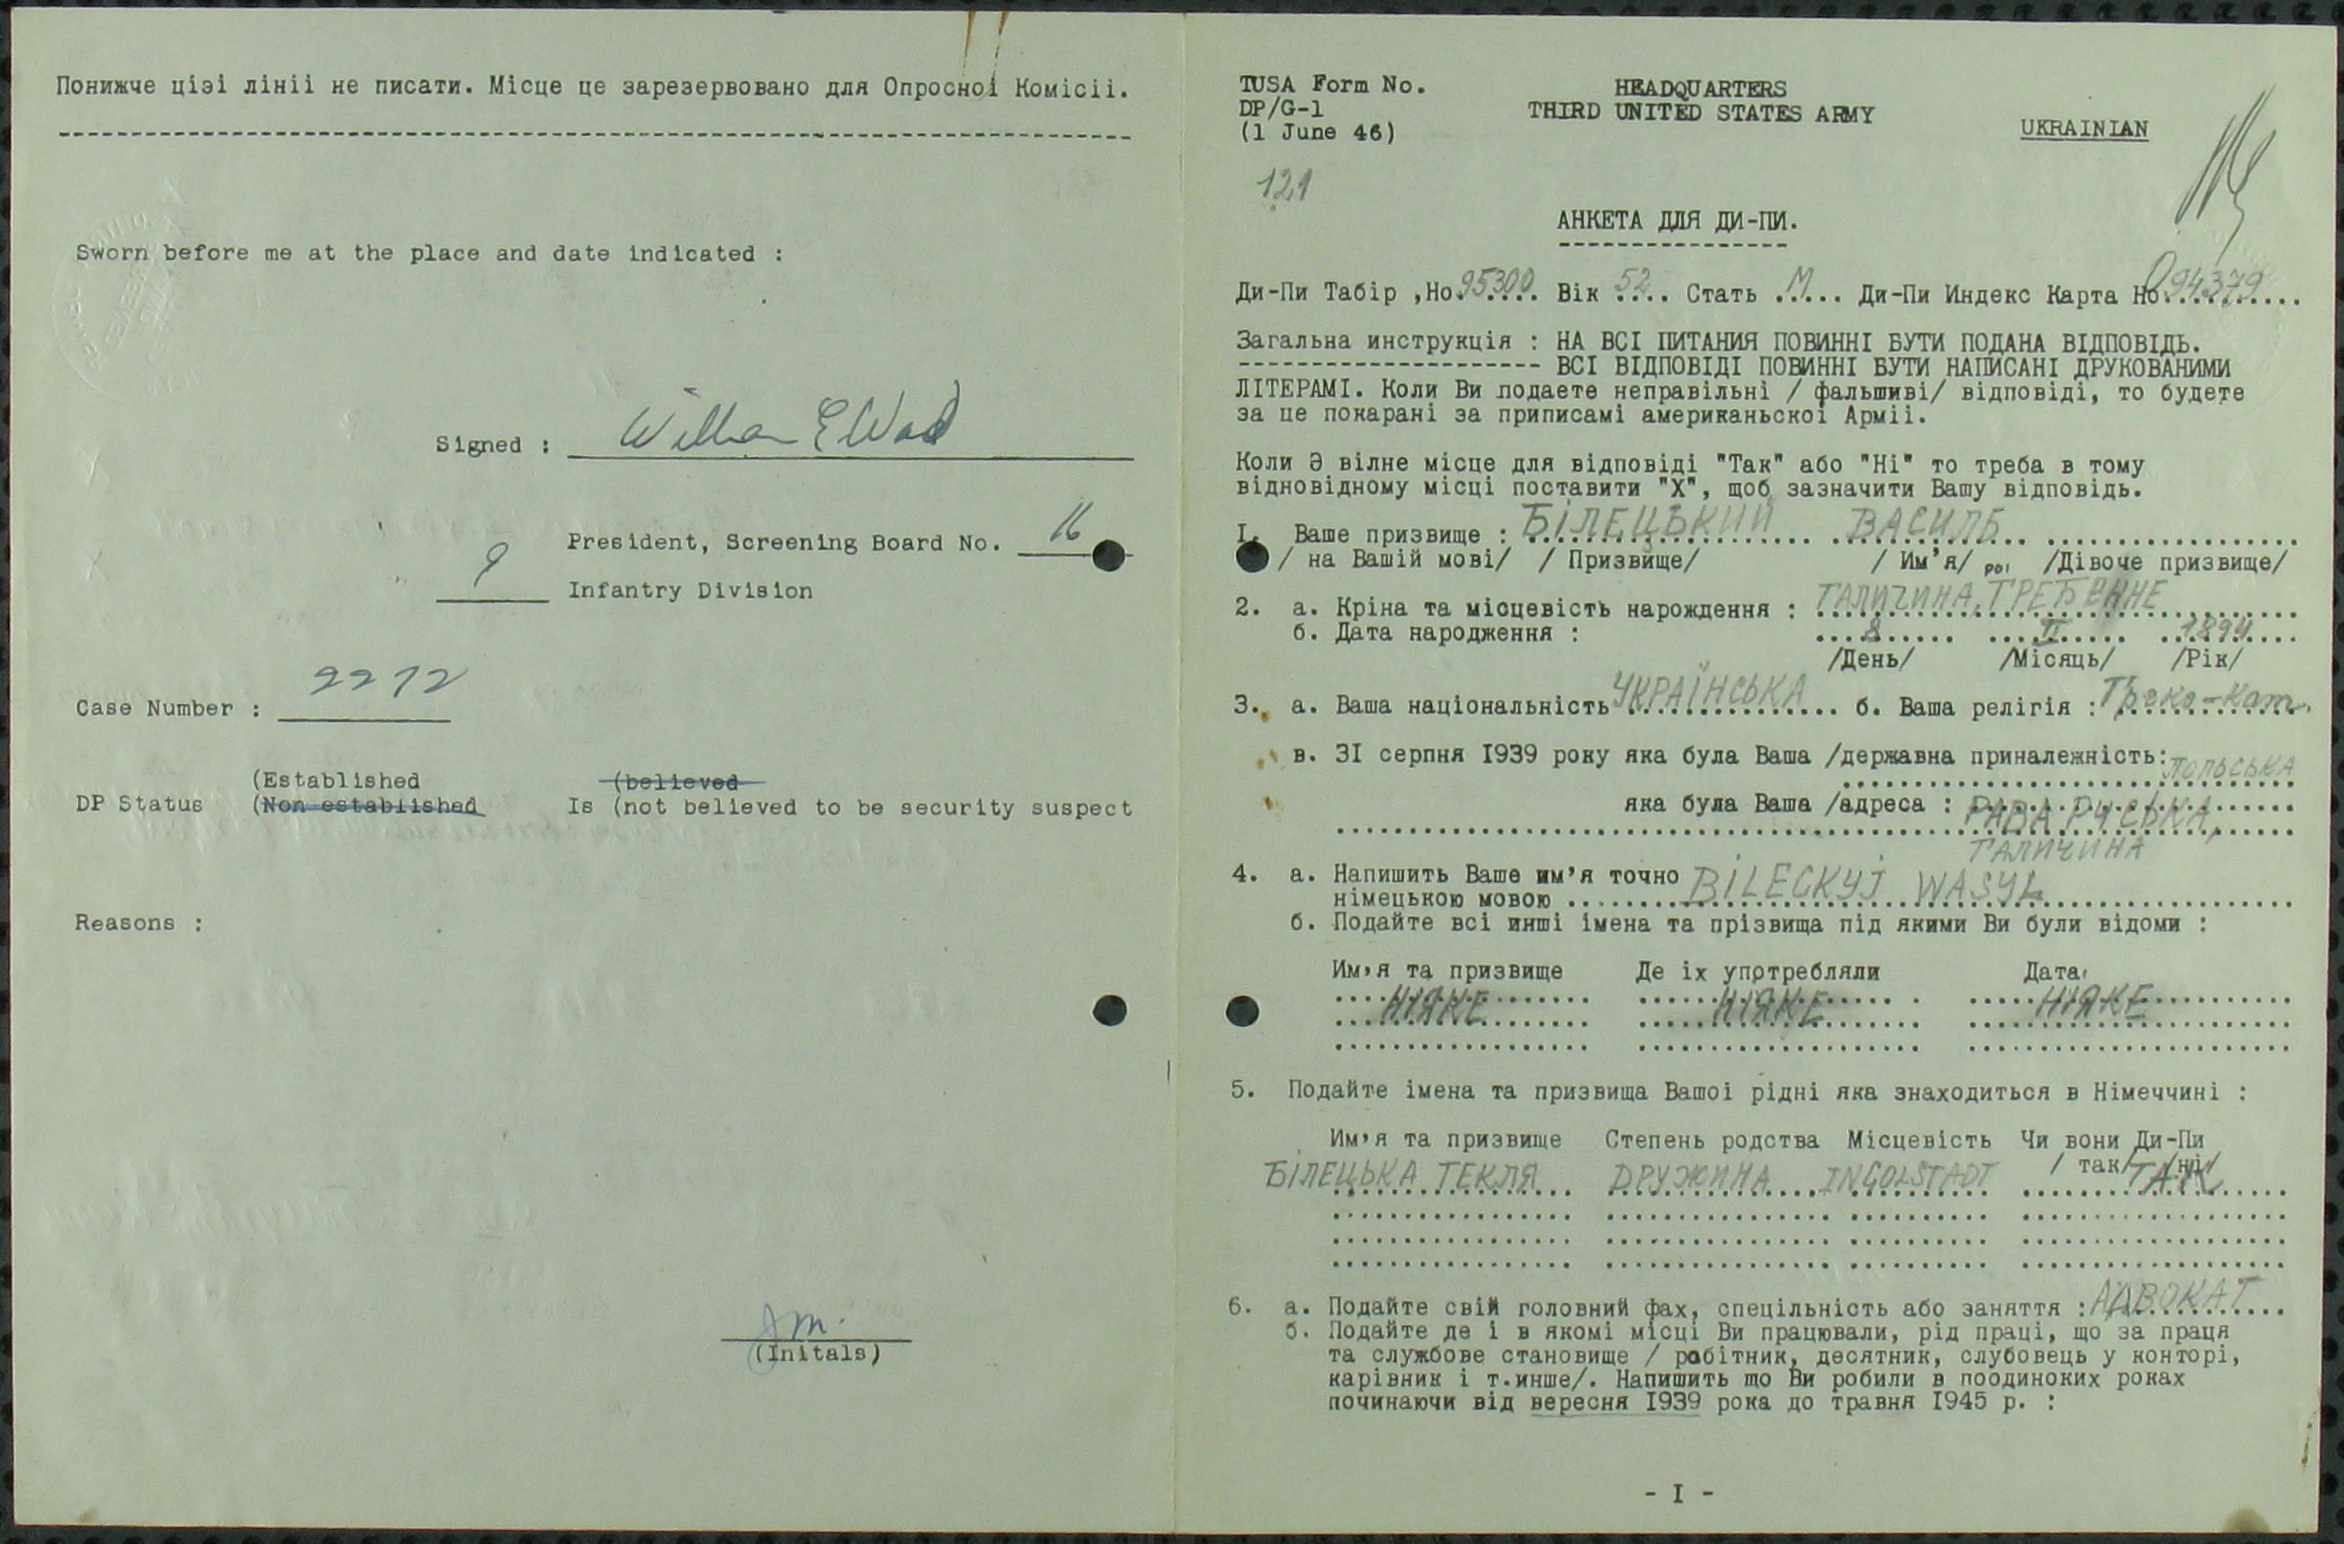 Понижче цізі лініі не писати. Місце це зарезервовано для Опросної Комісіі.
Sworn before me at the place and date indicated :
Signed : William E Wad
President, Screening Board No. 16
9 Infantry Division
Case Number : 2272
(Established (believed
DP Status (Non established Is (not believed to be security suspect
Reasons :
(Initals)
TUSA Form No. HEADQUARTERS
DP/G-1 THIRD UNITED STATES ARMY
(1 June 46) UKRAINIAN
121
АНКЕТА ДЛЯ ДИ-ПИ.
Ди-Пи Табір ,Но. 95300 Вік 52 Стать М Ди-Пи Индекс Карта Но. 094379
Загальна инструкція : НА ВСІ ПИТАНИЯ ПОВИННІ БУТИ ПОДАНА ВІДПОВІДЬ.
ВСІ ВІДПОВІДІ ПОВИННІ БУТИ НАПИСАНІ ДРУКОВАНИМИ
ЛІТЕРАМІ. Коли Ви подаете неправільні / фальшиві/ відповіді, то будете
за це покарані за приписамі американьскоі Арміі.
Коли Э вілне місце для відповіді "Так" або "Ні" то треба в тому
відновідному місці поставити "Х", щоб зазначити Вашу відповідь.
I. Ваше призвище : БІЛЕЦЬКИЙ ВАСИЛЬ
/ на Вашій мові/ / Призвище/ / Им'я/ /Дівоче призвище/
2. а. Кріна та місцевість нарождення : ГАЛИЧИНА, ГРЕБЕННЕ
б. Дата народження : 8 II 1894
/День/ /Місяць/ /Рік/
3. а. Ваша національність УКРАЇНСЬКА б. Ваша религія : Греко-Кат.
в. 3I серпня I939 року яка була Ваша /державна приналежність: ПОЛЬСЬКА
яка була Ваша /адреса : РАВА РУСЬКА,
ГАЛИЧИНА
4. а. Напишить Ваше им'я точно BiLECKYJ WASYL
німецькою мовою
б. Подайте всі инші імена та прізвища під якими Ви були відоми :
Им,я та призвище Де іх употребляли Дата
НІЯКЕ НІЯКЕ НІЯКЕ
5. Подайте імена та призвища Вашоі рідні яка знаходиться в Німеччині :
Им,я та призвище Степень родства Місцевість Чи вони Ди-Пи
/ так/ /ні/
БІЛЕЦЬКА ТЕКЛЯ ДРУЖИНА INGOLSTADT ТАК
6. а. Подайте свій головний фах, спецільність або заняття : АДВОКАТ
б. Подайте де і в якомі місці Ви працювали, рід праці, що за праця
та службове становище / робітник, десятник, слубовець у конторі,
карівник і т.инше/. Напишить що Ви робили в поодиноких роках
починаючи від вересня I939 рока до травня I945 р. :
- I -